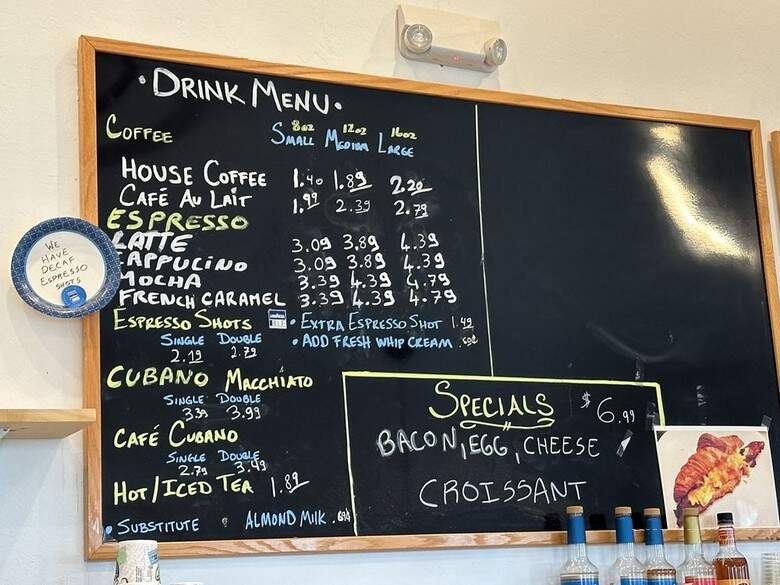 • DRINK MENU •
COFFEE
8oz 12oz 16oz
SMALL MEDIUM LARGE
HOUSE COFFEE 1.40 1.89 2.20
CAFÉ AU LAIT 1.99 2.39 2.79
ESPRESSO
LATTE 3.09 3.89 4.39
CAPPUCINO 3.09 3.89 4.39
MOCHA 3.39 4.39 4.79
FRENCH CARAMEL 3.39 4.39 4.79
ESPRESSO SHOTS
SINGLE DOUBLE
2.19 2.79
• EXTRA ESPRESSO SHOT 1.49
• ADD FRESH WHIP CREAM
CUBANO MACCHIATO
SINGLE DOUBLE
3.39 3.99
CAFÉ CUBANO
SINGLE DOUBLE
2.79 3.49
HOT/ICED TEA 1.89
• SUBSTITUTE • ALMOND MILK
SPECIALS $6.99
BACON, EGG, CHEESE
CROISSANT
WE
HAVE
DECAF
ESPRESSO
SHOTS